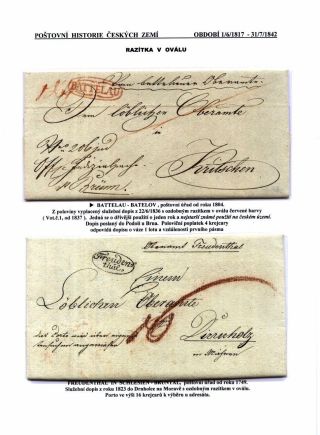 POŠTOVNÍ HISTORIE ČESKÝCH ZEMÍ OBDOBÍ 1/6/1817 - 31/7/1842
RAZÍTKA V OVÁLU
BATTELAU
Vom battelauer Oberamte
Dem
löblichen Oberamte
zu
Pritschen
▶ BATTELAU - BATELOV , poštovní úřad od roku 1804.
Z poloviny vyplacený služební dopis z 22/6/1836 s ozdobným razítkem v oválu červené barvy
( Vot.č.1, od 1837 ). Jedná se o dřívější použití o jeden rok a nejstarší známé použití na českém území.
Dopis poslaný do Podolí u Brna. Poloviční poplatek 4 krejcary
odpovídá dopisu o váze 1 lotu a vzdálenosti prvního pásma
Oberamt Freudenthal
Freuden
thal
Einem
Löblichen Oberamte
zu
Dürnholz
in Mähren
16
FREUDENTHAL IN SCHLESIEN - BRUNTÁL, poštovní úřad od roku 1749.
Služební dopis z roku 1823 do Drnholce na Moravě s ozdobným razítkem v oválu.
Porto ve výši 16 krejcarů k výběru u adresáta.